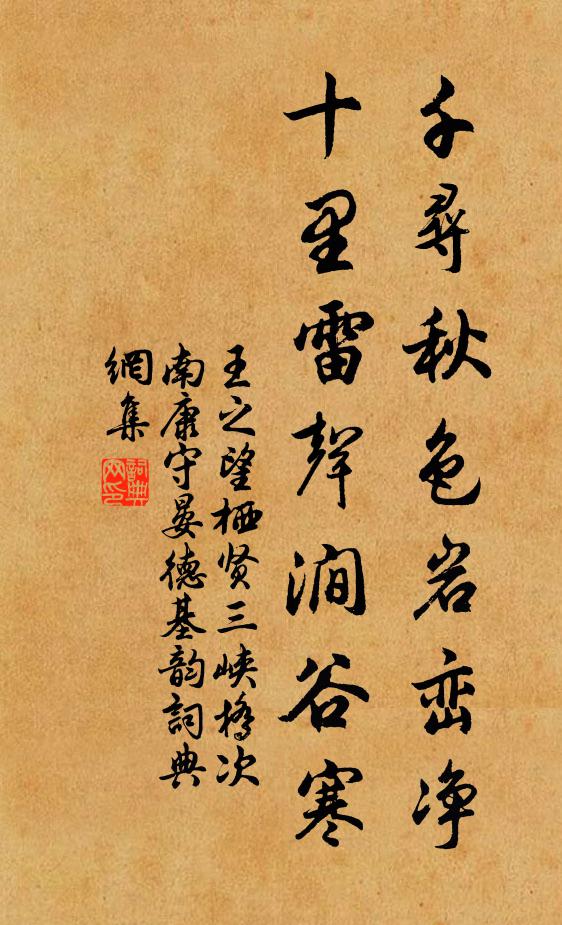 千尋秋色岩峦净
十里雷聲澗谷寒
王之望栖贤三峡橋次
南康守晏德基韵詞典
網集
詞典
网印